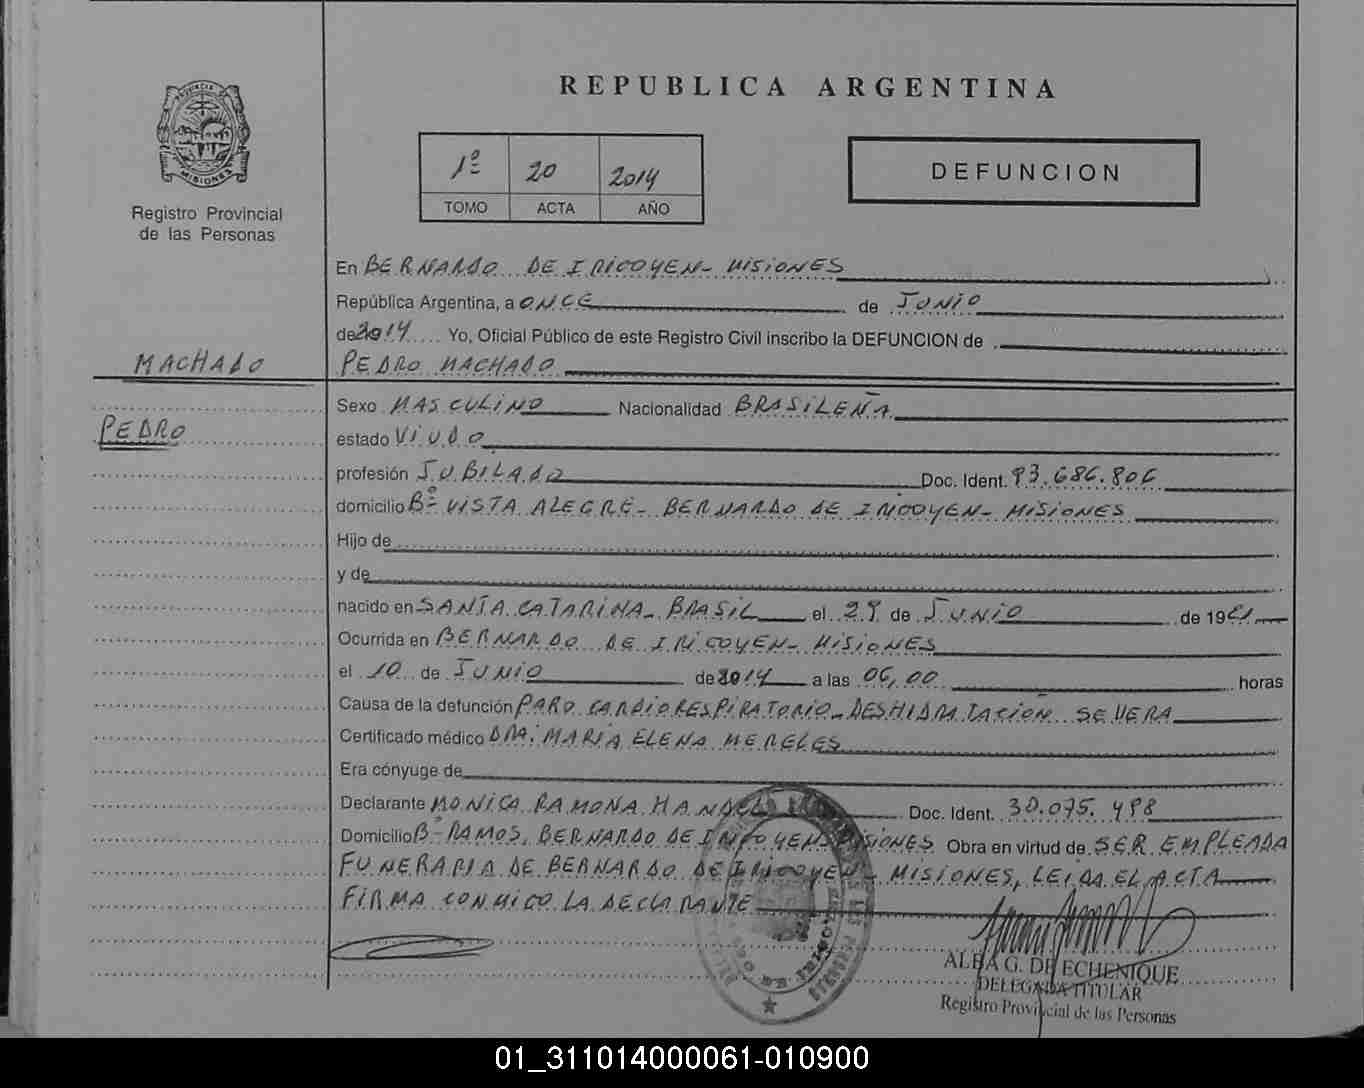 REPUBLICA ARGENTINA
PROVINCIA DE
MISIONES
Registro Provincial
de las Personas
1º 20 2014
TOMO ACTA AÑO
DEFUNCION
En BERNARDO DE IRIGOYEN - MISIONES
República Argentina, a ONCE de JUNIO
de 2014 Yo, Oficial Público de este Registro Civil inscribo la DEFUNCION de
MACHADO
PEDRO MACHADO
PEDRO
Sexo MASCULINO Nacionalidad BRASILEÑA
estado VIUDO
profesión JUBILADO Doc. Ident. 93.686.806
domicilio Bº VISTA ALEGRE - BERNARDO DE IRIGOYEN - MISIONES
Hijo de
y de
nacido en SANTA CATARINA - BRASIL el 29 de JUNIO de 19
Ocurrida en BERNARDO DE IRIGOYEN - MISIONES
el 10 de JUNIO de 2014 a las 06,00 horas
Causa de la defunción PARO CARDIORESPIRATORIO - DESHIDRATACION SEVERA
Certificado médico DRA. MARIA ELENA MERELES
Era cónyuge de
Declarante MONICA RAMONA Doc. Ident. 30.075.498
Domicilio Bº RAMOS, BERNARDO DE IRIGOYEN - MISIONES Obra en virtud de SER EMPLEADA
FUNERARIA DE BERNARDO DE IRIGOYEN - MISIONES, LEIDA EL ACTA
FIRMA CONMIGO LA DECLARANTE
ALBA G. DE ECHENIQUE
DELEGADA TITULAR
Registro Provincial de las Personas
01_311014000061-010900